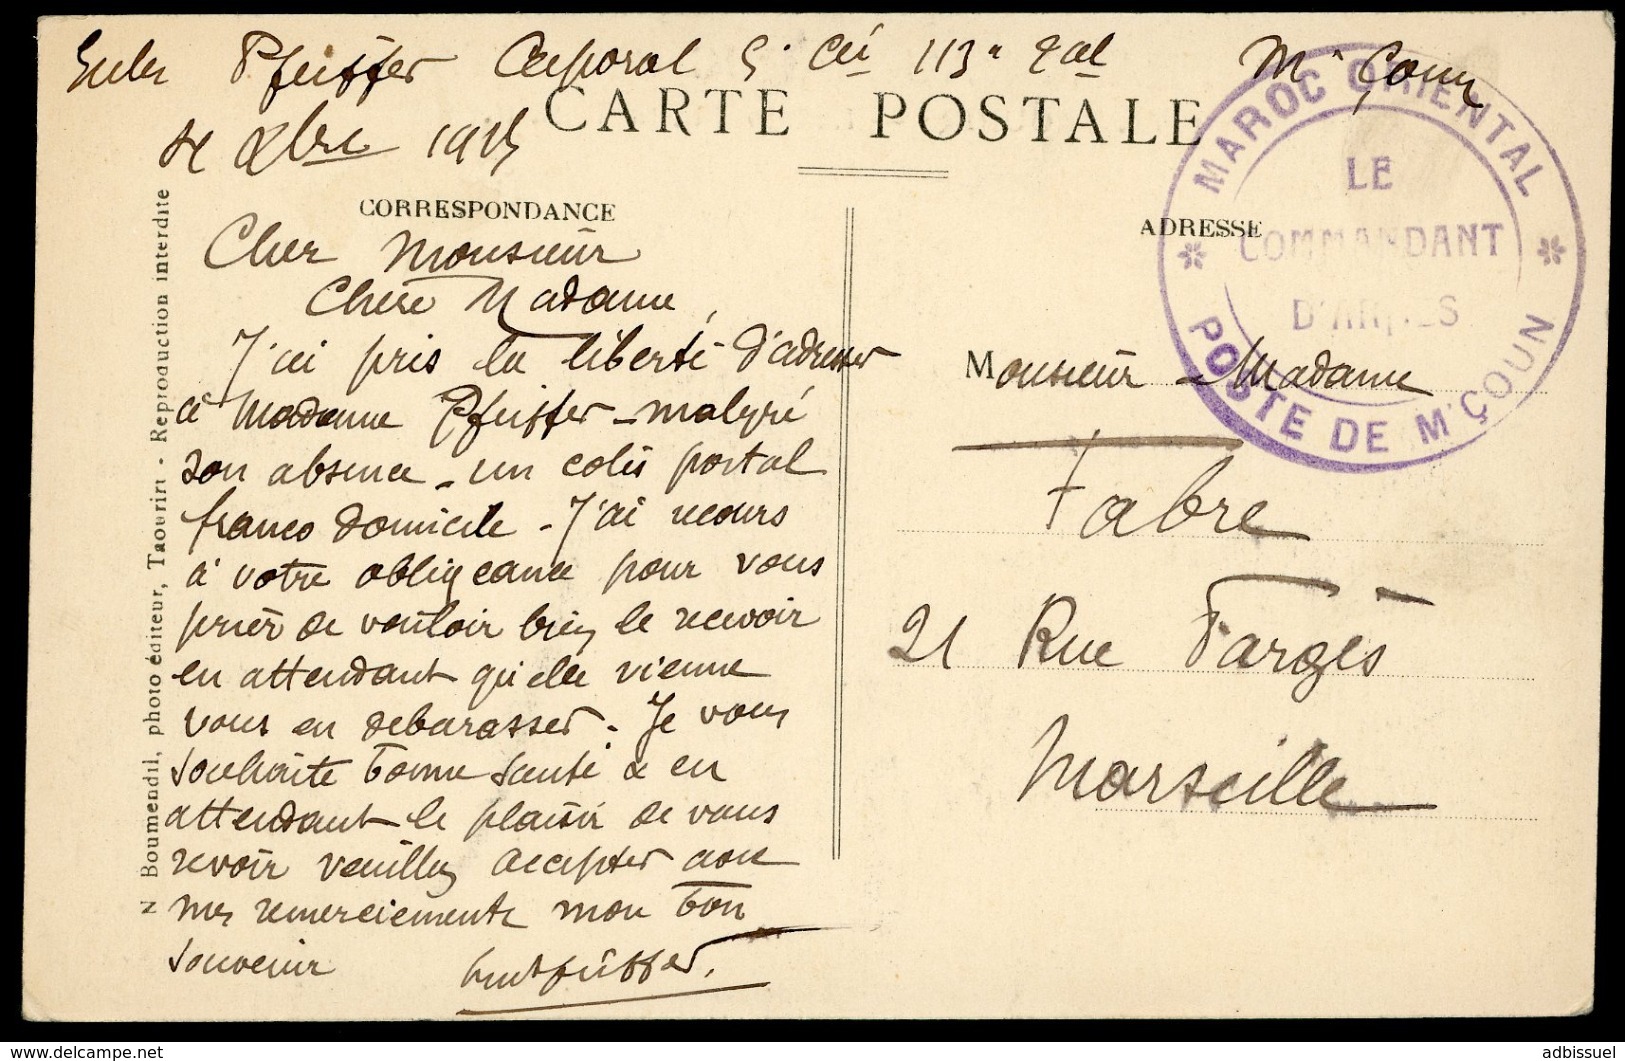 Pfeiffer Caporal 5e Cie 113e Bal M'Çoun
Xbre 1915
CARTE POSTALE
CORRESPONDANCE
ADRESSE
MAROC ORIENTAL
LE
COMMANDANT
D'ARMES
POSTE DE M'ÇOUN
Cher Monsieur
Chère Madame,
J'ai pris la liberté d'adresser
à Madame Pfeiffer - malgré
son absence - un colis postal
franco domicile - J'ai recours
à votre obligeance pour vous
prier de vouloir bien le recevoir
en attendant qu'elle vienne
vous en debarasser - Je vous
souhaite bonne santé & en
attendant le plaisir de vous
revoir veuillez accepter avec
mes remerciements mon bon
souvenir
Pfeiffer.
Monsieur - Madame
Fabre
21 Rue Farges
Marseille
N Boumendil, photo éditeur, Taourirt - Reproduction interdite
adbissuel